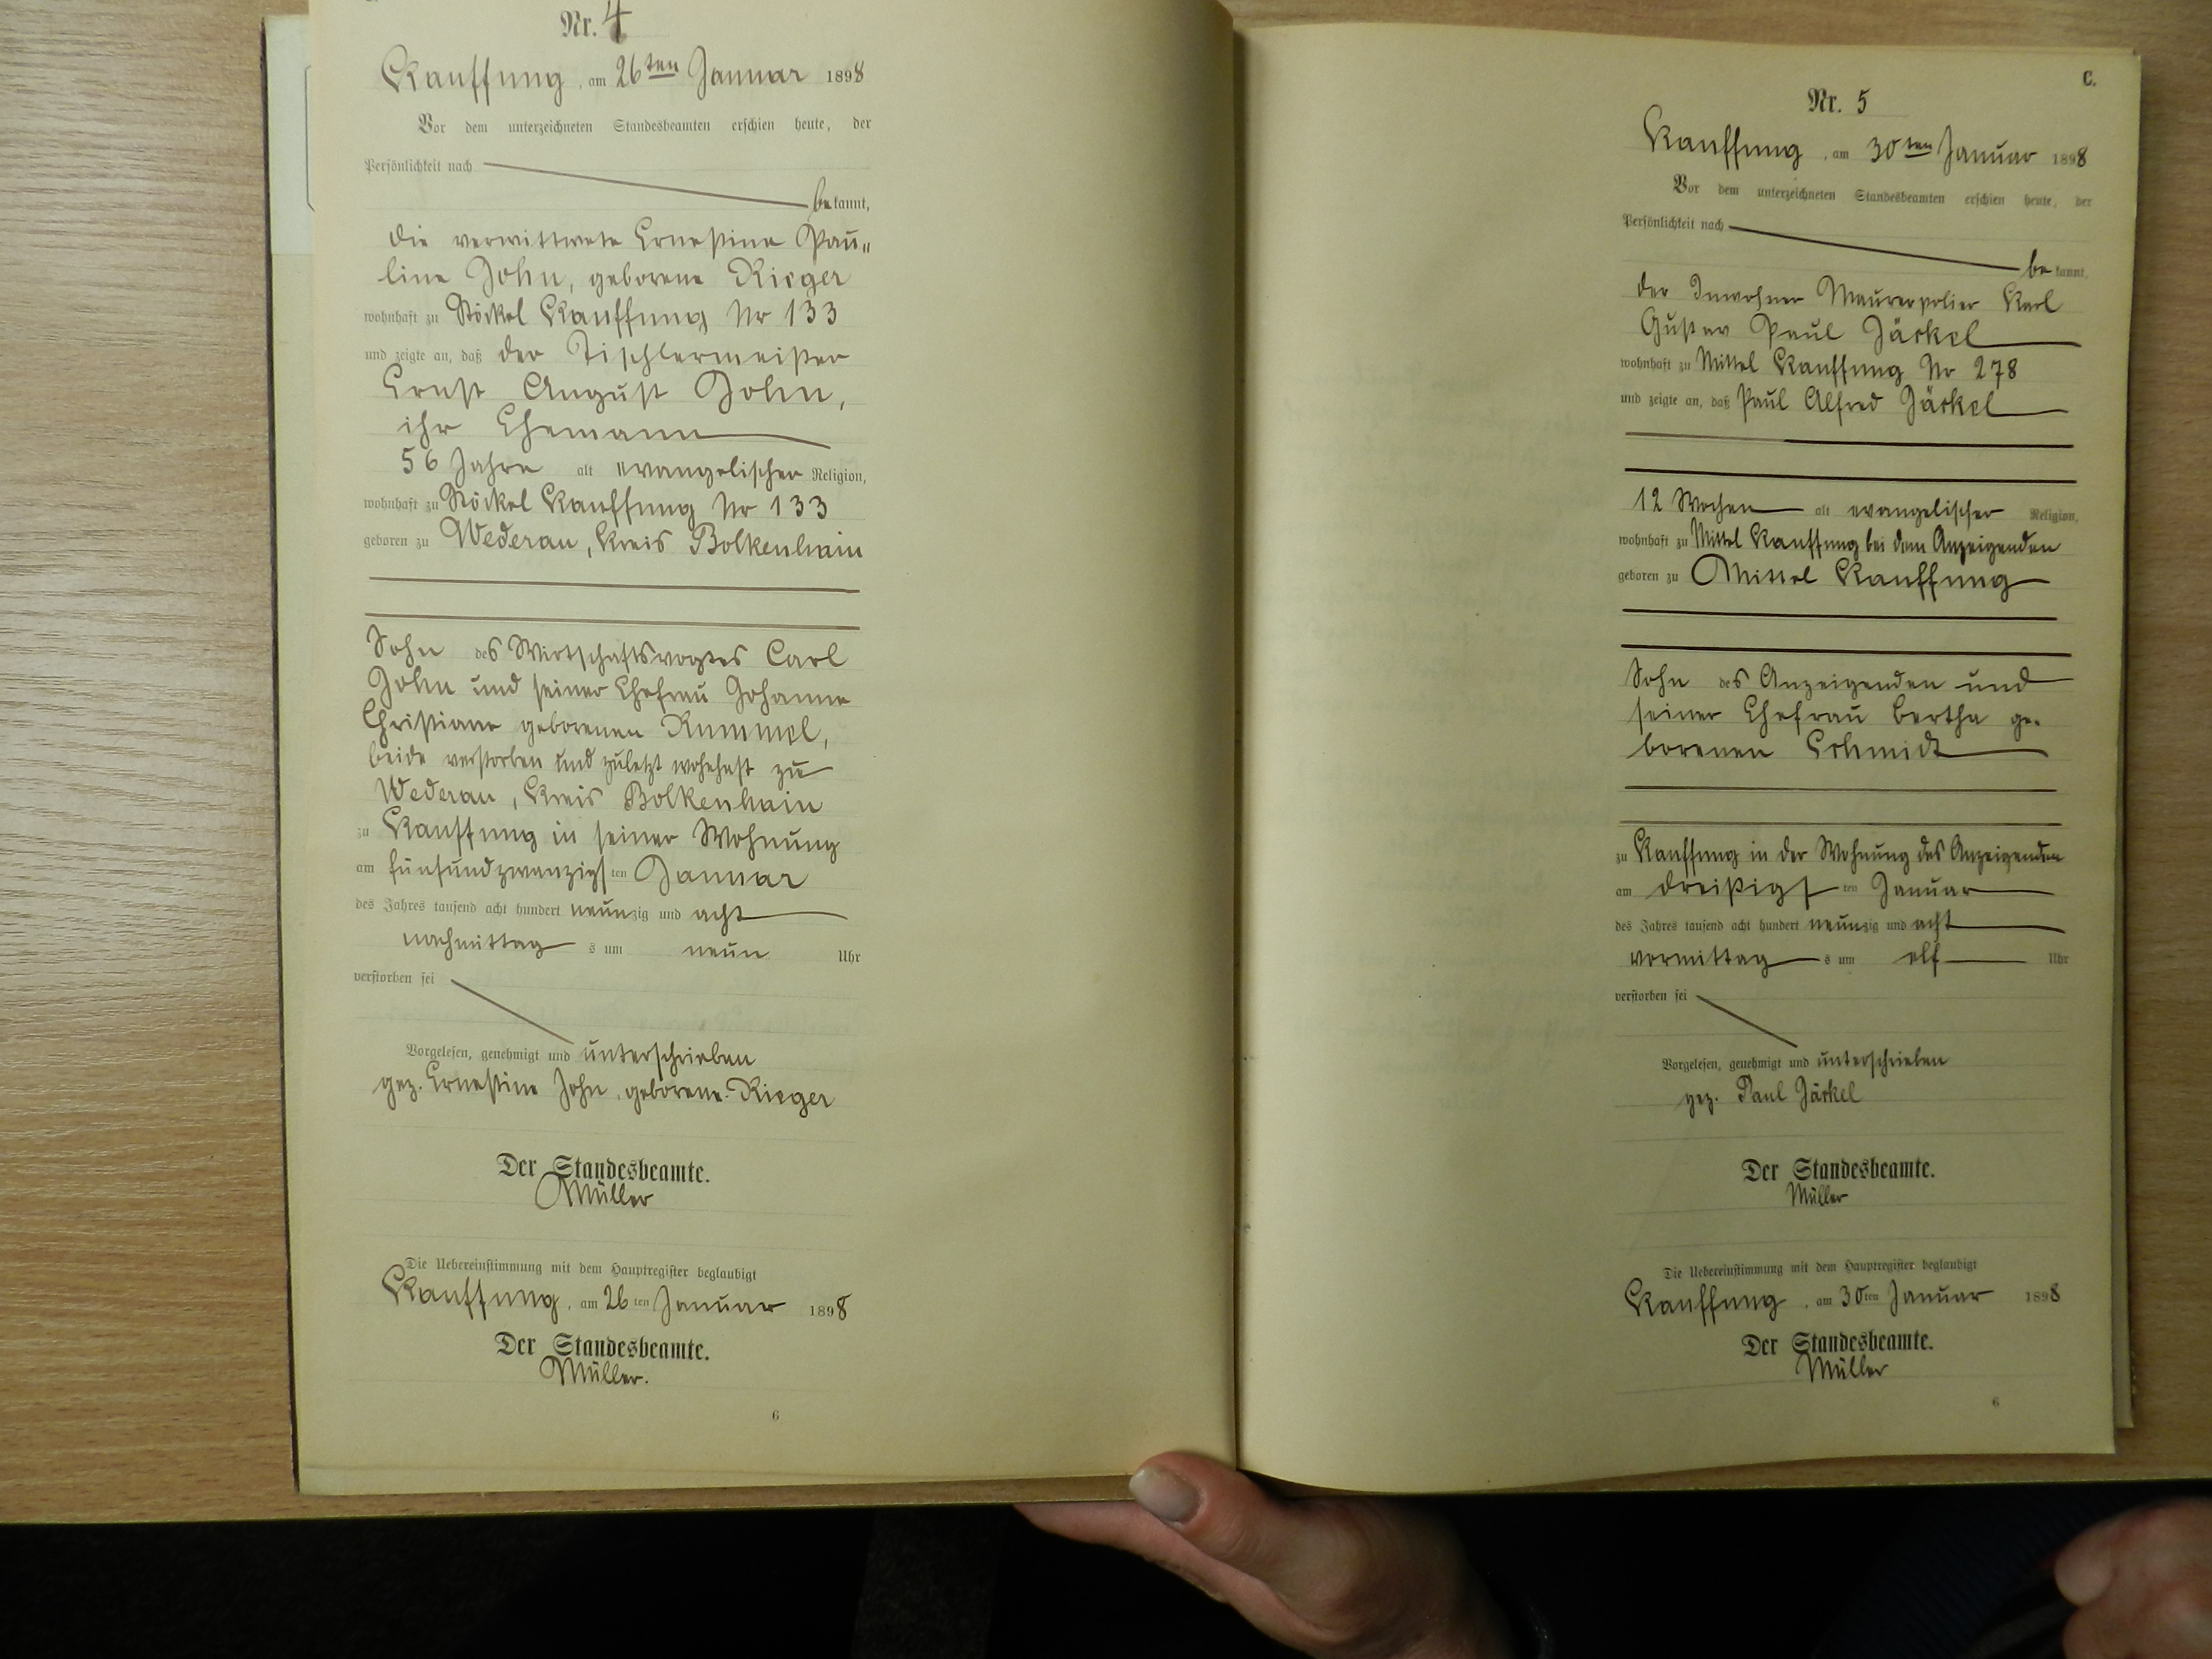 Nr. 4
Kauffung, am 26ten Januar 1898
Vor dem unterzeichneten Standesbeamten erschien heute, der
Persönlichkeit nach
bekannt,
die verwittwete Ernestine Pau„
line John, geborene Rieger
wohnhaft zu Stöckel Kauffung Nr 133
und zeigte an, daß der Tischlermeister
Ernst August John,
ihr Ehemann
56 Jahre alt evangelischer Religion,
wohnhaft zu Stöckel Kauffung Nr 133
geboren zu Wederau, Kreis Bolkenhain
Sohn des Wirtschaftsvogtes Carl
John und seiner Ehefrau Johanne
Christiane geborenen Rummel,
beide verstorben und zuletzt wohnhaft zu
Wederau, Kreis Bolkenhain
zu Kauffung in seiner Wohnung
am fünfundzwanzigsten Januar
des Jahres tausend acht hundert neunzig und acht
nachmittags um neun Uhr
verstorben sei
Vorgelesen, genehmigt und unterschrieben
gez. Ernestine John, geborene Rieger
Der Standesbeamte.
Müller
Die Uebereinstimmung mit dem Hauptregister beglaubigt
Kauffung, am 26ten Januar 1898
Der Standesbeamte.
Müller.
6
C.
Nr. 5
Kauffung, am 30ten Januar 1898
Vor dem unterzeichneten Standesbeamten erschien heute, der
Persönlichkeit nach
bekannt,
der Inwohner Maurerpolier Karl
Gustav Paul Jäckel
wohnhaft zu Mittel Kauffung Nr 278
und zeigte an, daß Paul Alfred Jäckel
12 Wochen alt evangelischer Religion,
wohnhaft zu Mittel Kauffung bei dem Anzeigenden
geboren zu Mittel Kauffung
Sohn des Anzeigenden und
seiner Ehefrau Bertha ge-
borenen Schmidt
zu Kauffung in der Wohnung des Anzeigenden
am dreißigsten Januar
des Jahres tausend acht hundert neunzig und acht
vormittags um elf Uhr
verstorben sei
Vorgelesen, genehmigt und unterschrieben
gez. Paul Jäckel
Der Standesbeamte.
Müller
Die Uebereinstimmung mit dem Hauptregister beglaubigt
Kauffung, am 30ten Januar 1898
Der Standesbeamte.
Müller
6